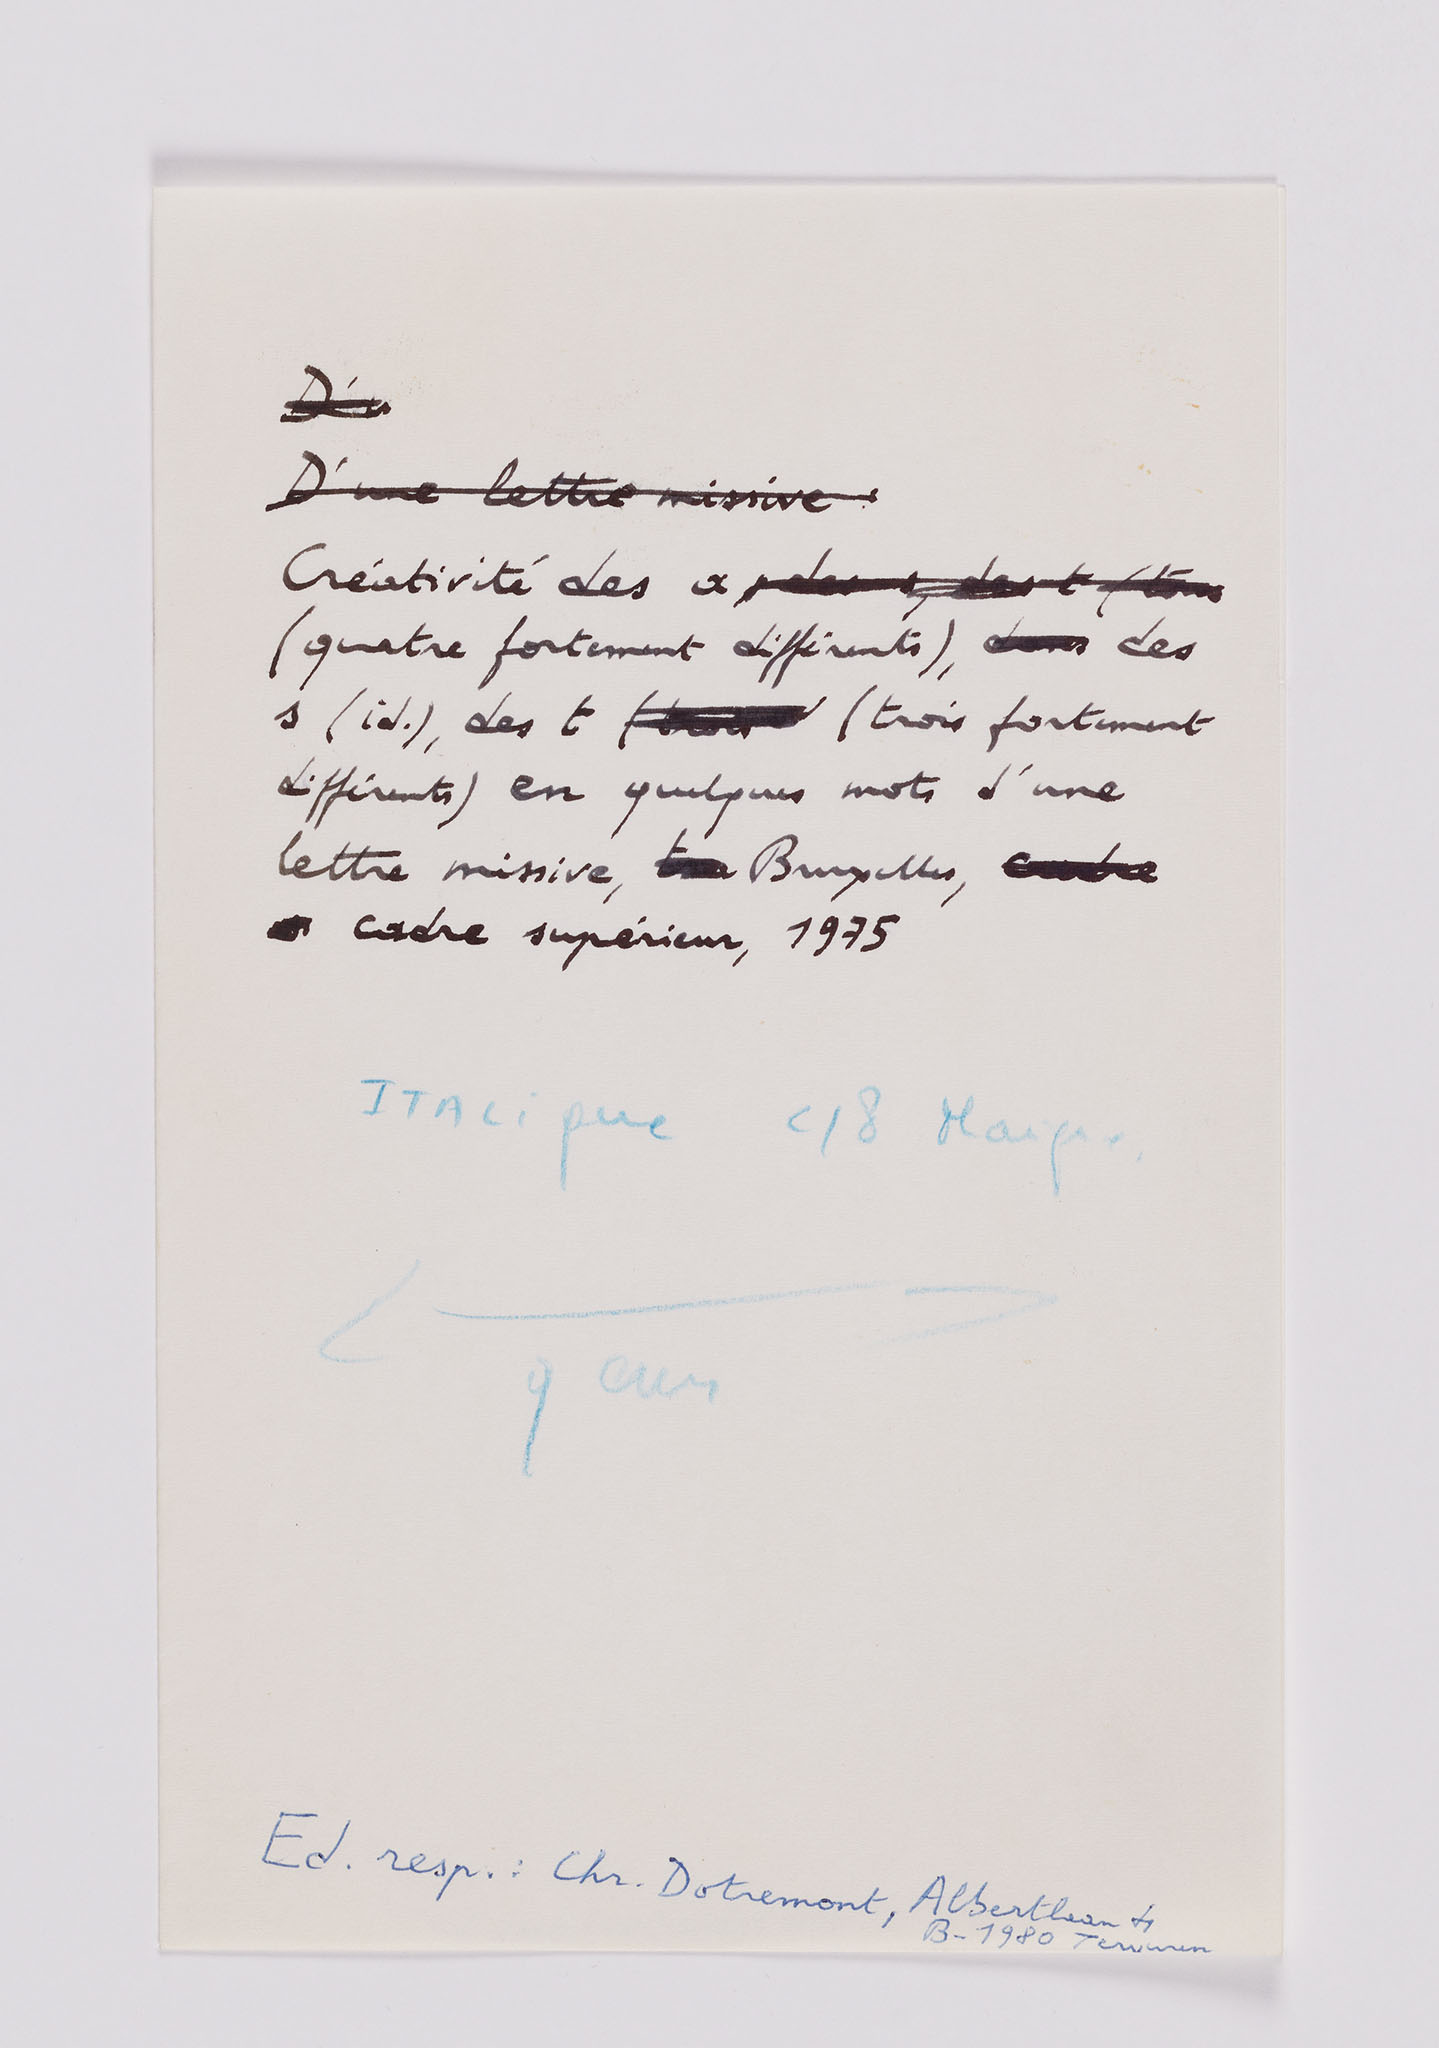 D'u
D'une lettre missive :
Créativité des a, des s, des t (trois
(quatre fortement différents), dans des
s (id.), des t (trois (trois fortement
différents) en quelques mots d'une
lettre missive, Bruxelles, cadre
cadre supérieur, 1975
ITALique c/8 Maigre.
9 cm
Ed. resp. : Chr. Dotremont, Albertlaan
B-1980 Tervuren